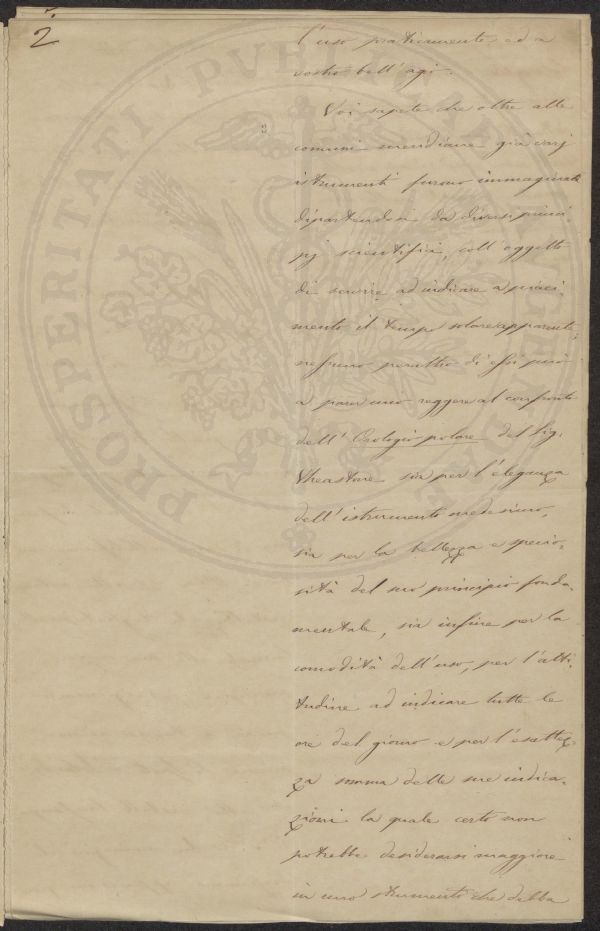 2
l'uso praticamente, ed a
vostro bell'agi.
Voi sapete che oltre alle
comuni meridiane già varj
istrumenti furono immaginati
dipartendosi da diversi princi
pj scientifici, coll'oggetto
di servire ad indicare a puni-
mento il tempo solare apparente,
nessuno peraltro di essi può
a parer mio reggere al confronto
dell'Orologio polare del Sig.
Wheastone sia per l'eleganza
dell'istrumento medesimo,
sia per la bellezza e specio-
sità del suo principio fonda-
mentale, sia infine per la
comodità dell'uso, per l'atti-
tudine ad indicare tutte le
ore del giorno e per l'esattez-
za somma delle sue indica-
zioni la quale certo non
potrebbe desiderarsi maggiore
in uno strumento che debba
PROSPERITATI PVBLICAE AVGENDAE